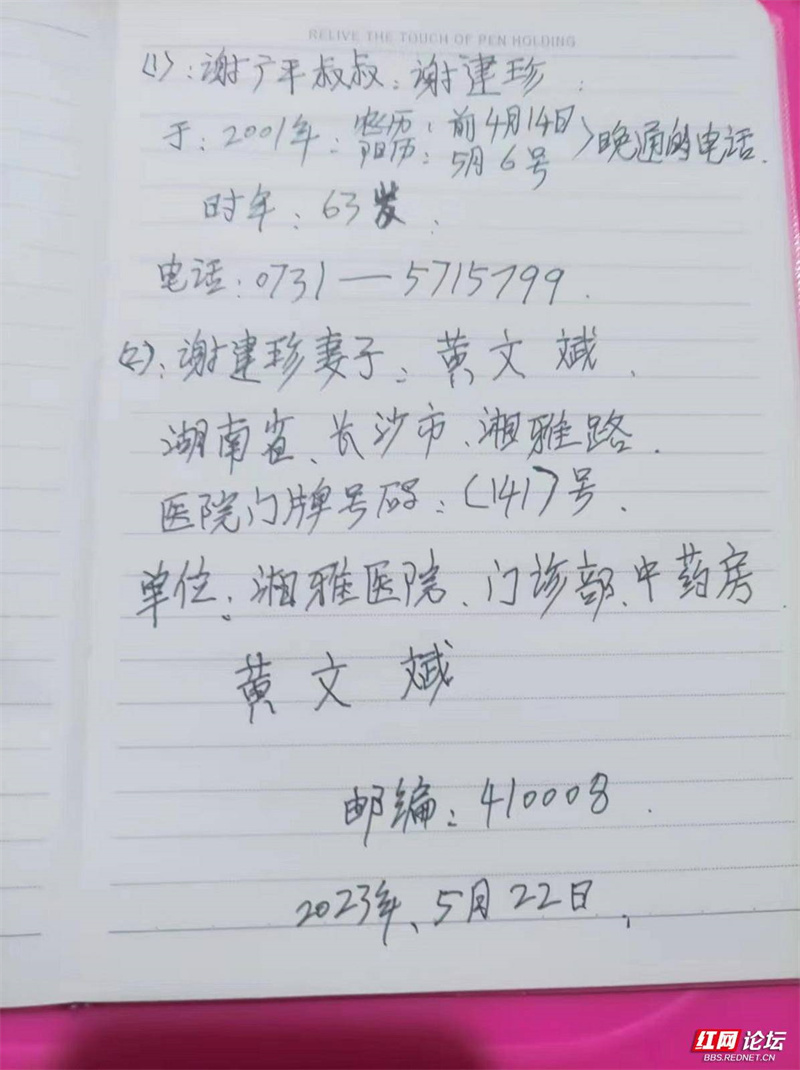 RELIVE THE TOUCH OF PEN HOLDING
(1):谢广平叔叔:谢建珍:
于:2001年:农历:前4月14日
阳历:5月6号>晚通的电话.
时年:63岁.
电话:0731—5715799.
(2):谢建珍妻子:黄文斌.
湖南省、长沙市、湘雅路.
医院门牌号码:(141)号.
单位:湘雅医院、门诊部、中药房.
黄文斌
邮编:410008.
2023年、5月22日.
红网论坛
BBS.REDNET.CN